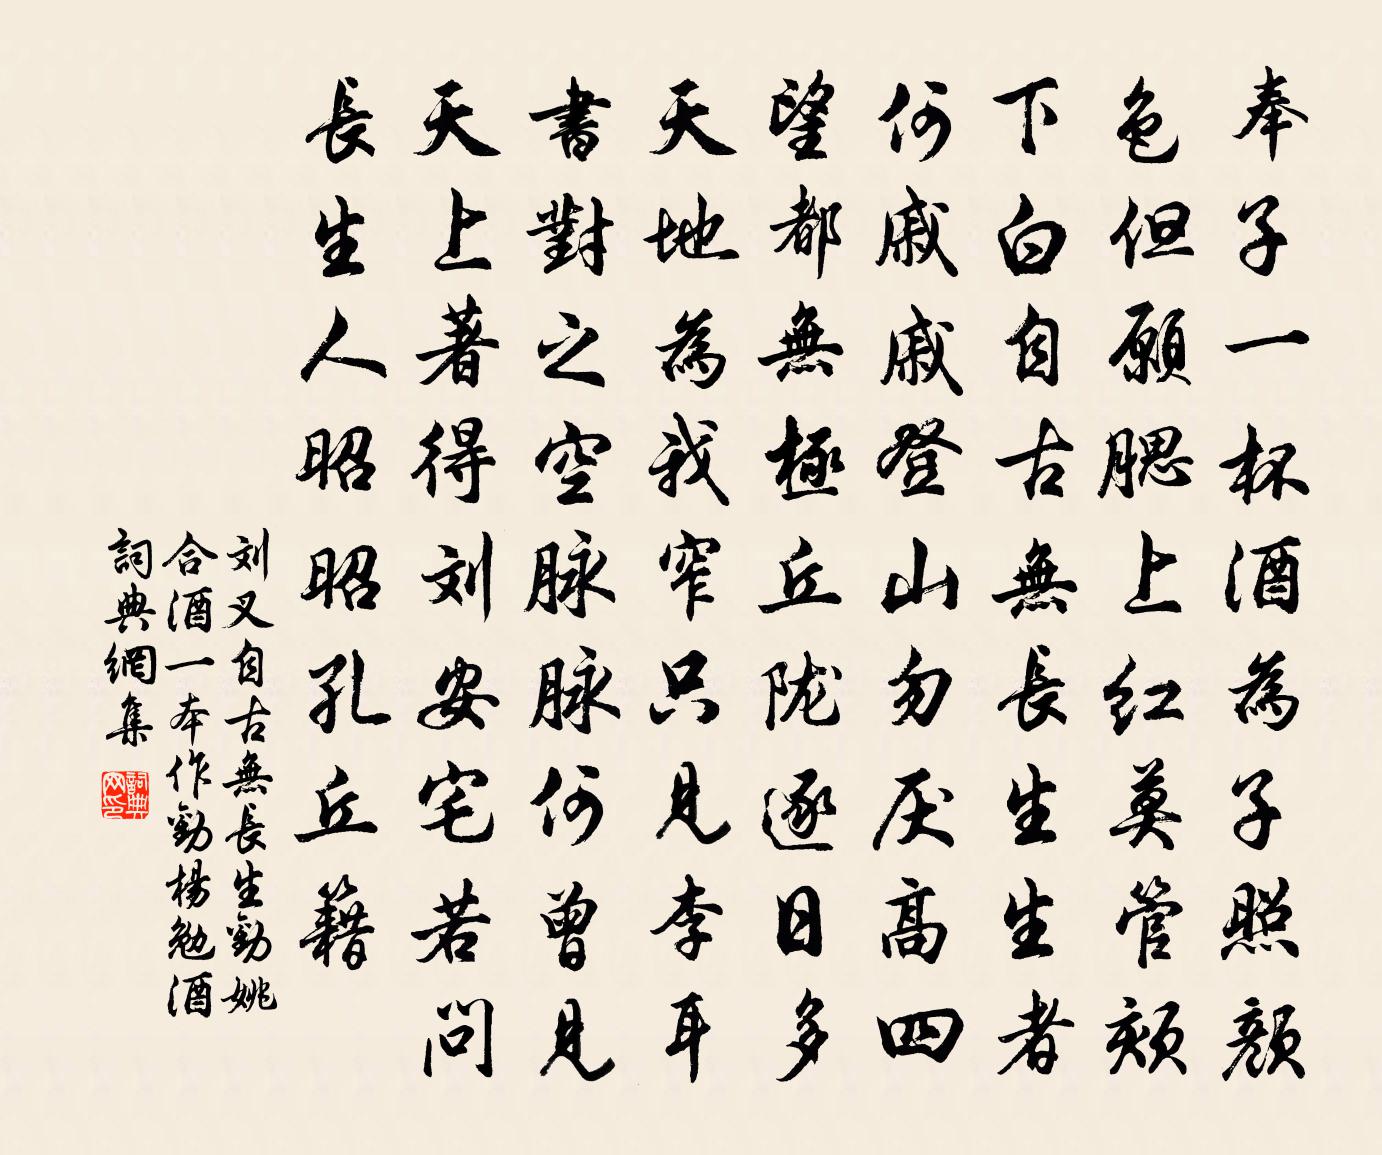 奉子一杯酒為子照顏
色但願腮上红莫管頦
下白自古無長生生者
何戚戚登山勿厌高四
望都無極丘陇逐日多
天地為我窄只見李耳
書對之空脉脉何曾見
天上著得刘安宅若問
長生人昭昭孔丘籍
刘叉自古無長生勸姚
合酒一本作勸楊勉酒
詞典網集
詞典网印